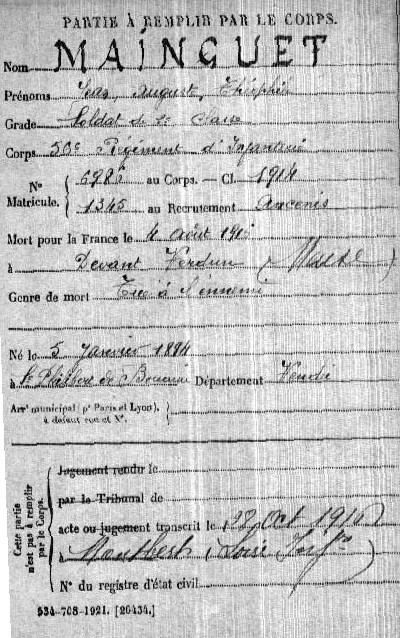 PARTIE À REMPLIR PAR LE CORPS.
Nom MAINGUET
Prénoms Jean, August, Théophile
Grade Soldat de 2e
Corps 50e Régiment d'Infanterie
N° Matricule. { 6986 au Corps. — Cl. 1914
1345 au Recrutement Ancenis
Mort pour la France le 4 août 1916
à Devant Verdun (Meuse)
Genre de mort Tué à l'ennemi
Né le 5 Janvier 1894
à St Philbert de Bouaine Département Vendée
Arrt municipal (pr Paris et Lyon),
à défaut rue et N°.
Cette partie n'est pas à remplir par le Corps.
Jugement rendu le
par le Tribunal de
acte ou jugement transcrit le 22 Oct 1916
à Montbert (Loire Infre)
N° du registre d'état civil
534-708-1921. [26434.]